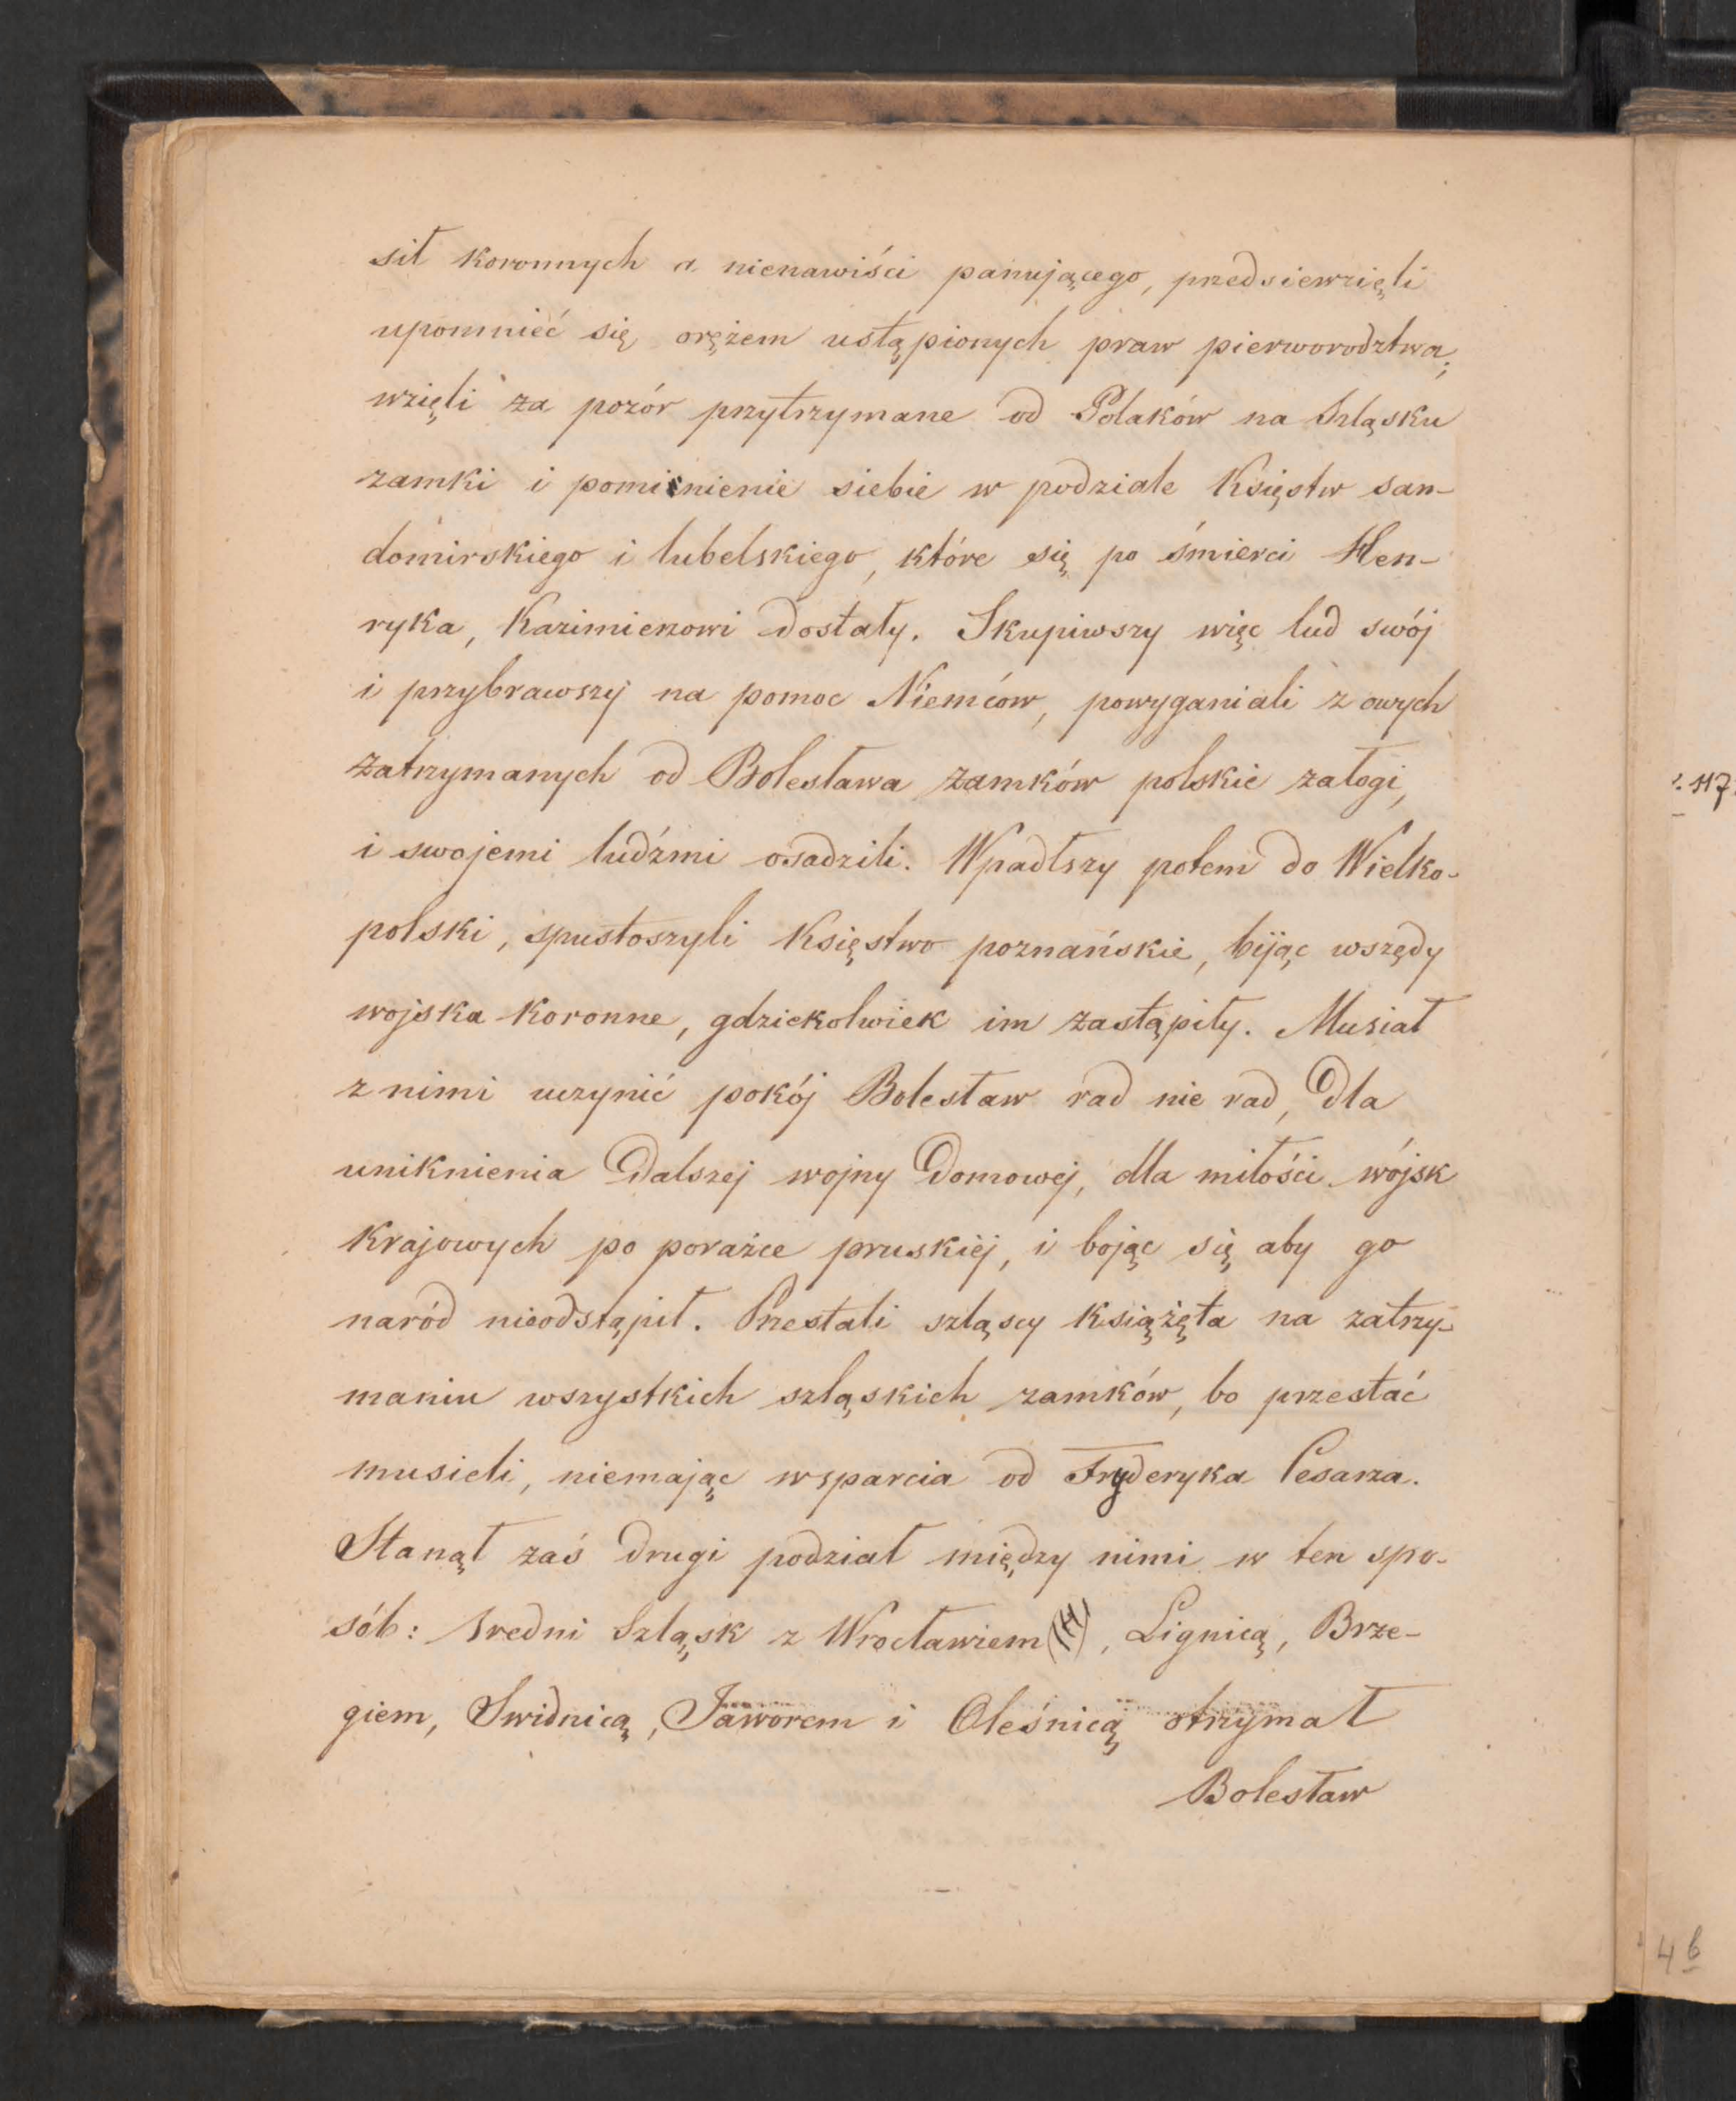 sił koronnych a nienawiści panującego, przedsiewzięli
upomnieć się orężem ustąpionych praw pierworodztwa;
wzięli za pozór przytrzymane od Polaków na Szląsku
zamki i pominienie siebie w podziale Księstw san-
domirskiego i lubelskiego, które się po śmierci Hen-
ryka, Kazimierzowi dostały. Skupiwszy więc lud swój
i przybrawszy na pomoc Niemców, powyganiali z owych
zatrzymanych od Bolesława zamków polskie załogi,
i swojemi ludźmi osadzili. Wpadłszy potem do Wielko-
polski, spustoszyli Księstwo poznańskie, bijąc wszędy
wojska koronne, gdziekolwiek im zastąpiły. Musiał
z nimi uczynić pokój Bolesław rad nie rad, dla
uniknienia dalszej wojny domowej, dla miłości wójsk
krajowych po porażce pruskiéj, i bojąc się aby go
naród nieodstąpił. Przestali szląscy książęta na zatrzy-
maniu wszystkich szląskich zamków, bo przestać
musieli, niemając wsparcia od Fryderyka Cesarza.
Stanął zaś drugi podział między nimi w ten spo-
sób: sredni Szląsk z Wrocławiem, Lignicą, Brze-
giem, Swidnicą, Jaworem i Oleśnicą otrzymał
Bolesław
117
46